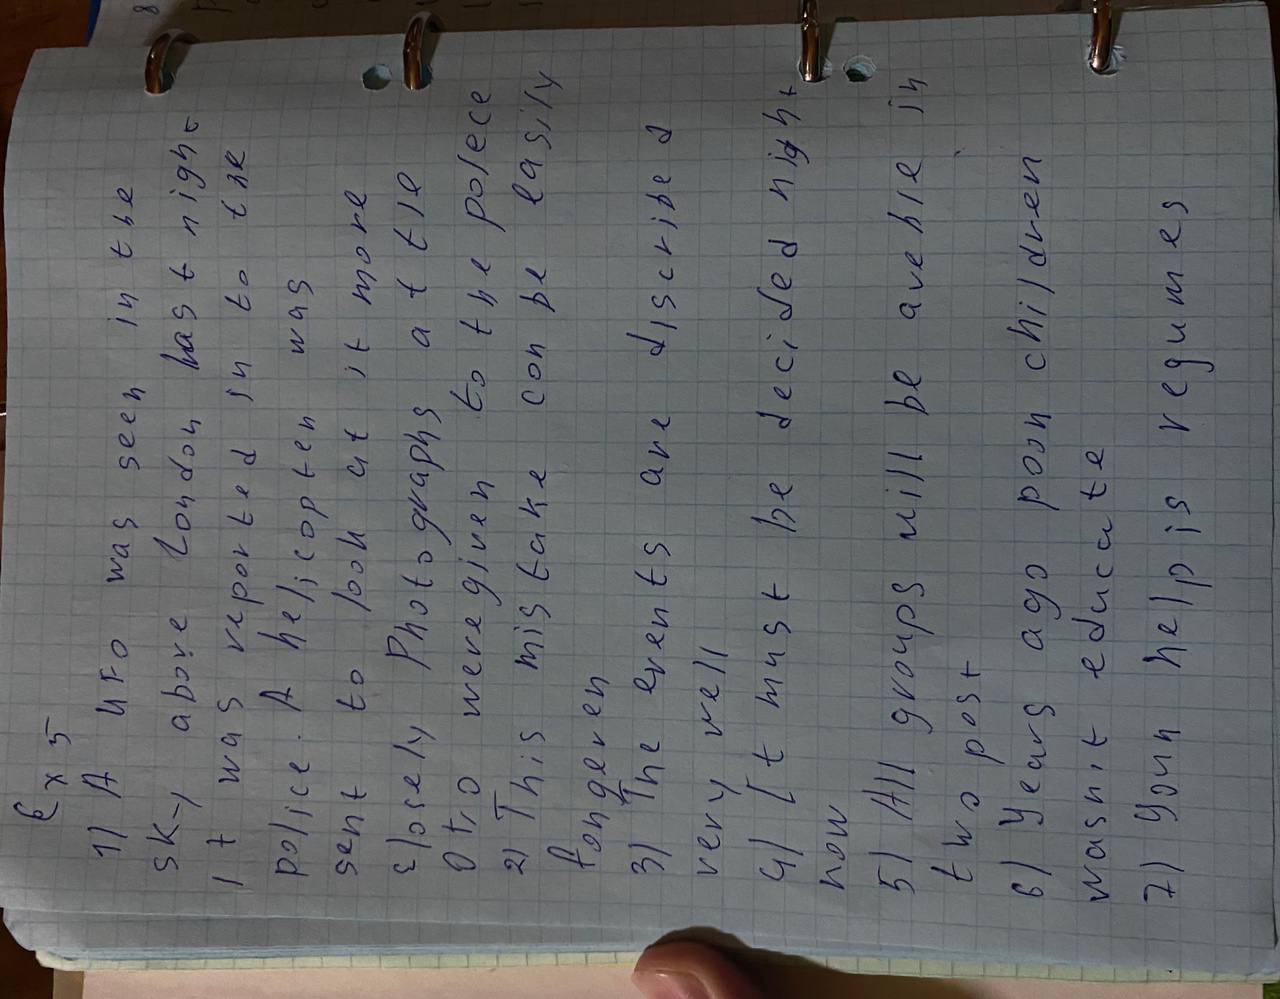 Ex 5
1) A UFO was seen in the
sky above London last night
It was reported in to the
police. A helicopter was
sent to look at it more
closely Photographs at the
were given to the polece
2) This mistake con be easily
3) The events are discribed
very well
4) It must be decided night
now
5) All groups will be aveble in
two post
6) Years ago poon children
wasn't educate
7) Your help is regumes